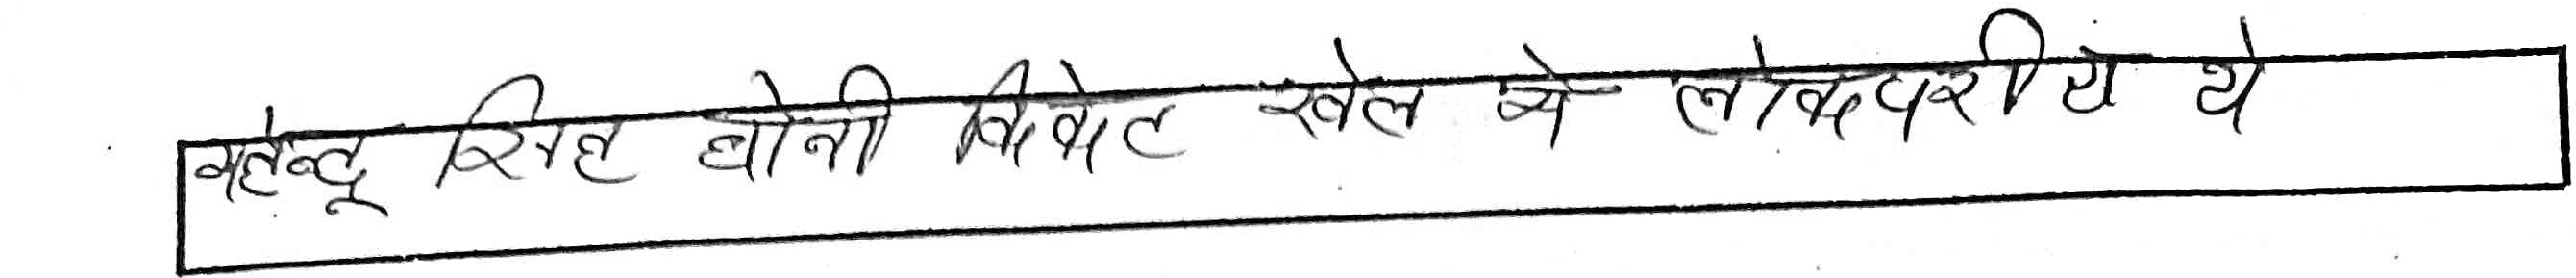 महेन्द्र सिंह धोनी क्रिकेट खेल मे लोकपरीय थे